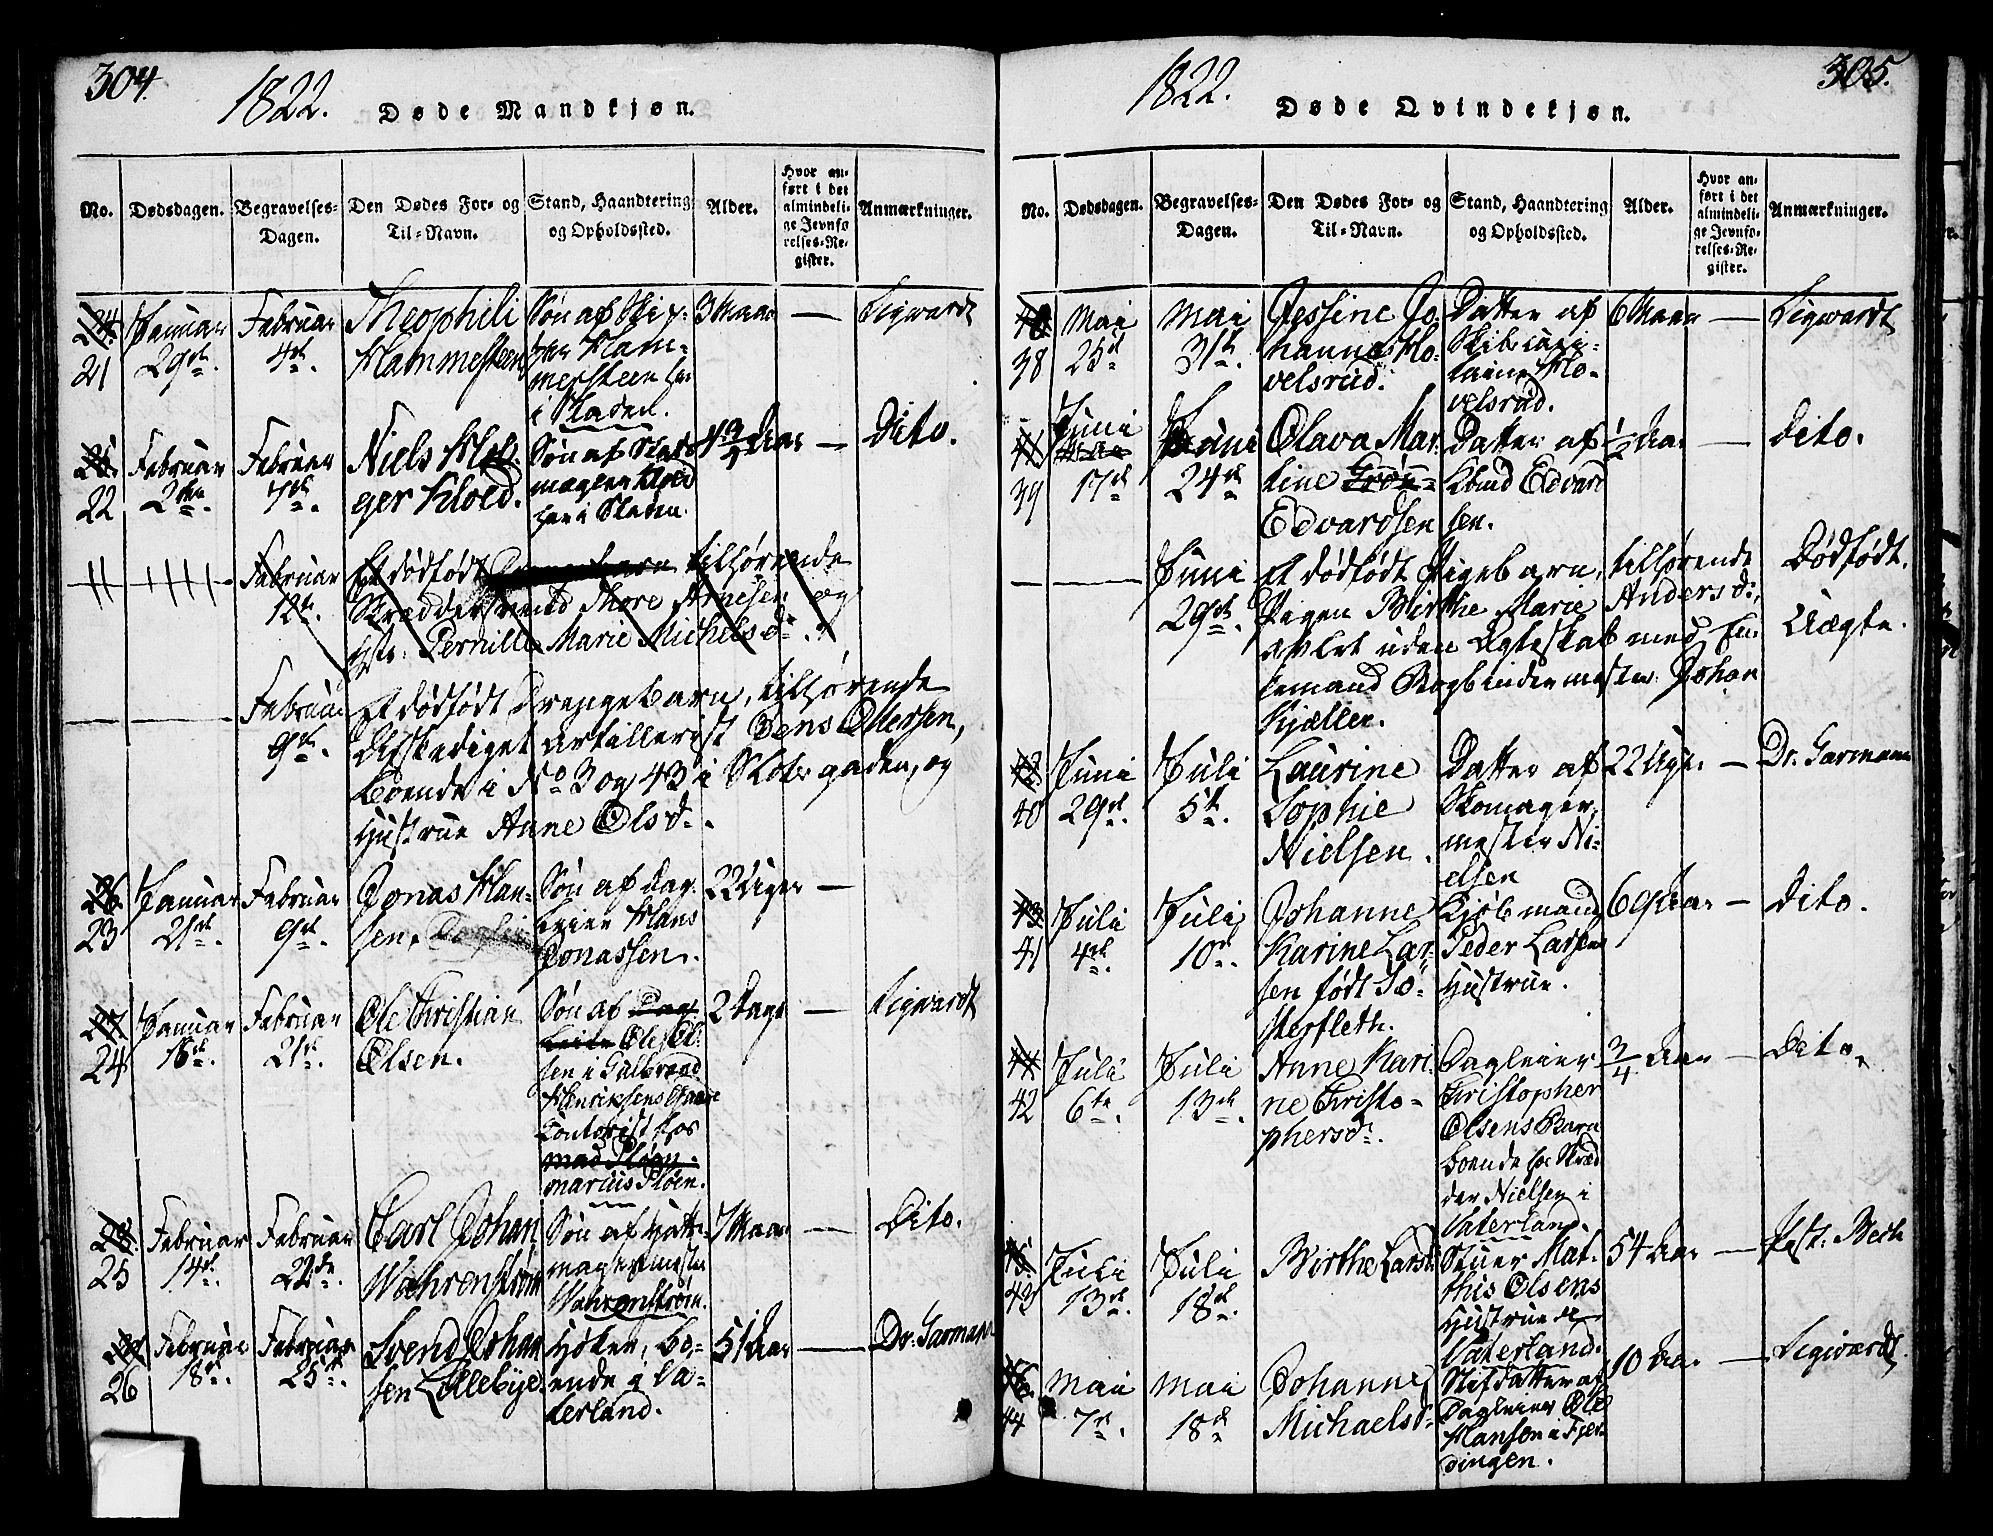 304.
1822. Døde Mandkjøn.
No. Dødsdagen. Begravelses-Dagen. Den Dødes For- og Til-Navn. Stand, Haandtering og Opholdssted. Alder. Hvor anført i det almindelige Jevnførelses-Register. Anmærkninger.
24. 21 Januar 29de. Februar 4de. Theophili Hammersteen Søn af Skipper Hammersteen her i Staden. 3 Maan — Sigwardt
25. 22 Februar 2den. Februar 7de. Niels Holger Kloed. Søn af Kloed her i Staden. Aar — Dito.
Februar 12te. Et dødfødt tilhørende
Skreddersvend Thore Arnesen og
Hst: Pernille Marie Michelsd:
— — Februar 9de. Et dødfødt Drengebarn, tilhørende
Afskediget Artillerist Jens Ottersen,
boende i No 3 og 43 i gaden, og
Hustrue Anne Olsd:.
26. 23 Januar 21de. Februar 9de. Jonas Hansen. Søn af Dagleier Hans Jonassen. 22 Uger —
27. 24 Januar 18de. Februar 21de. Ole Christian Olsen. Søn af Dagleier Ole Olsen i Gulbrand Henriksens Contorist hos Marcus Pløen. 2 Dage — Sigwardt
28. 25 Februar 14de. Februar 22de. Carl Johan Wahrenstrøm Søn af Hattemagermester Wahrenstrøm. 7 Maan — Dito.
29. 26 Februar 18de. Februar 25de. Svend Johansen Lillebye. Høker, boende i Vaterland. 51 Aar — Dr. Garmann
305.
1822. Døde Qvindekjøn.
No. Dødsdagen. Begravelses-Dagen. Den Dødes For- og Til-Navn. Stand, Haandtering og Opholdssted. Alder. Hvor anført i det almindelige Jevnførelses-Register. Anmærkninger.
40 38 Mai 25de Mai 31te. Jessine Johanne Hovelsrud. Datter af Hovelsrud. 6 Maan — Sigwardt
41 39 Juni 17de Juni 24de Olava Martine Edvardsen Datter af Edvardsen. 1/2 Aar — Dito.
— — Juni 29de. Et dødfødt Pigebarn, tilhørende Dødfødt.
Pigen Birthe Marie Andersd:,
avlet uden Ægteskab med Uægte.
Bogbindermester Johan
Kjeller.
42 40 Juni 29de. Juli 5te. Laurine Sophie Nielsen. Datter af Skomagermester Nielsen 22 Uger — Dr. Garmann
43 41 Juli 4de. Juli 10de. Johanne Karine Larsen født Kjøbmand Peder Larsens Hustrue. 69 Aar — Dito.
44 42 Juli 6te. Juli 13de. Anne Karine Christophersd:. Dagleier Christopher Olsens Barn boende hos Skredder Nielsen i Vaterland. 3/4 Aar — Dito.
45. 43 Juli 13de. Juli 18de. Birthe Larsd: Stuer Mathis Olsens Hustrue Vaterland. 54 Aar — Bech
46. 44 Mai 7de. Mai 18de Johanne Michaelsd: Stifdatter af Dagleier Ole Hansen i Fjerdingen. 10 Aar. — Sigwardt.